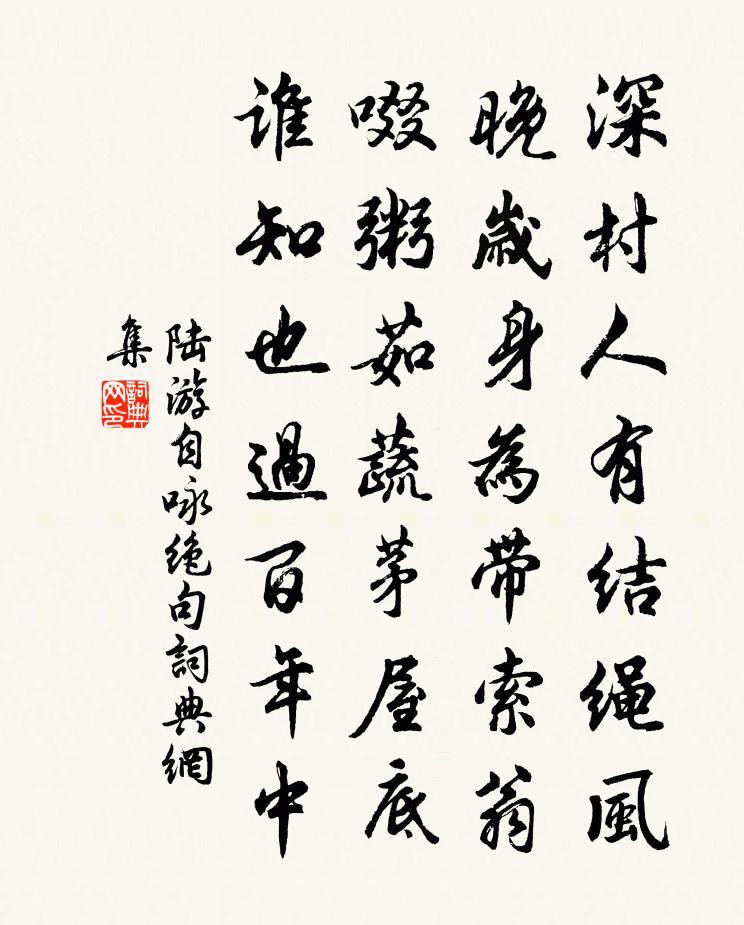 深村人有结绳風
晚歲身為帶索翁
啜粥茹蔬茅屋底
谁知也過百年中
陆游自咏绝句詞典網
集
詞典
网印